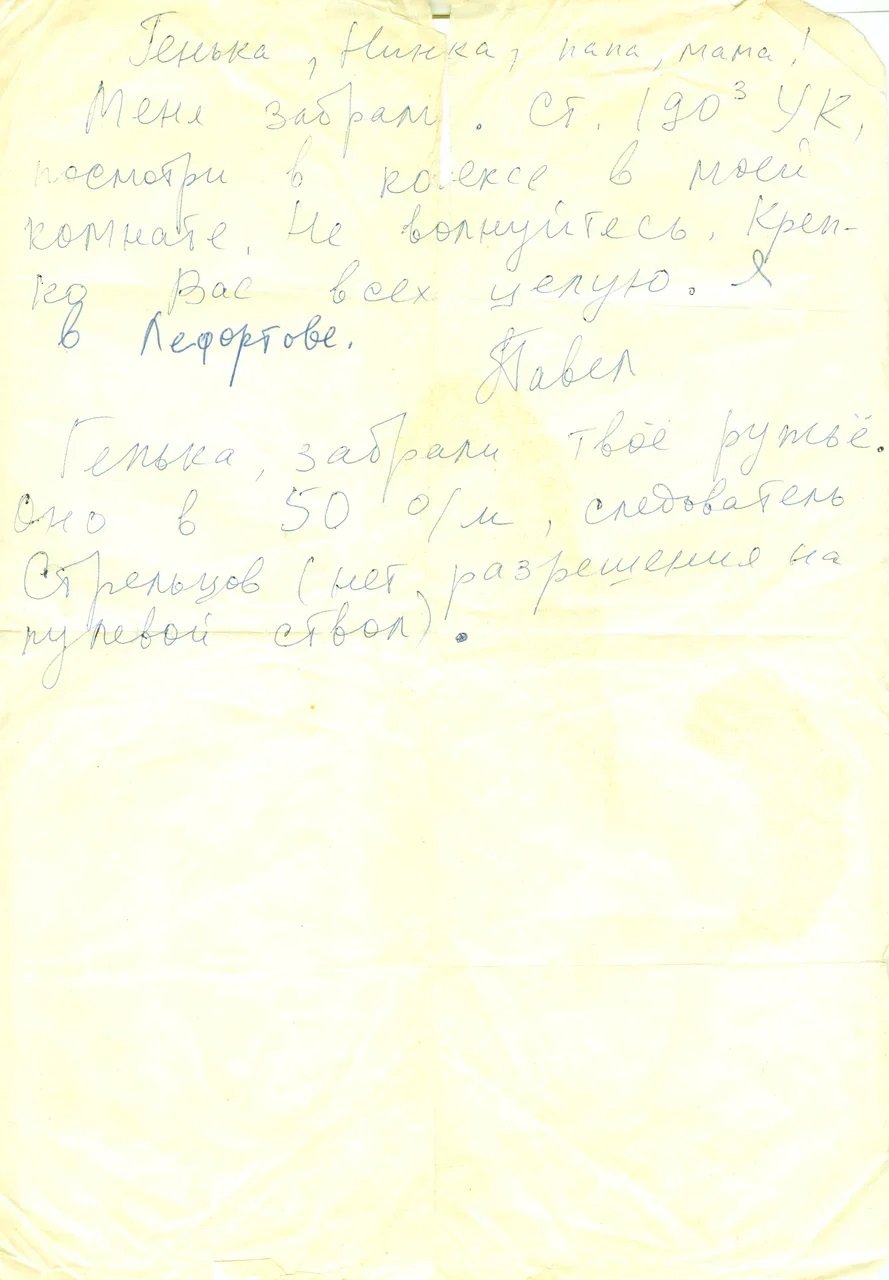 Генька, Нинка, папа, мама!
Меня забрали. Ст. 190³ УК,
посмотри в кодексе в моей
комнате. Не волнуйтесь. Креп-
ко Вас всех целую. Я
в Лефортове.
Павел
Генька, забрали твоё ружьё.
Оно в 50 о/м, следователь
Стрельцов (нет разрешения на
пулевой ствол).